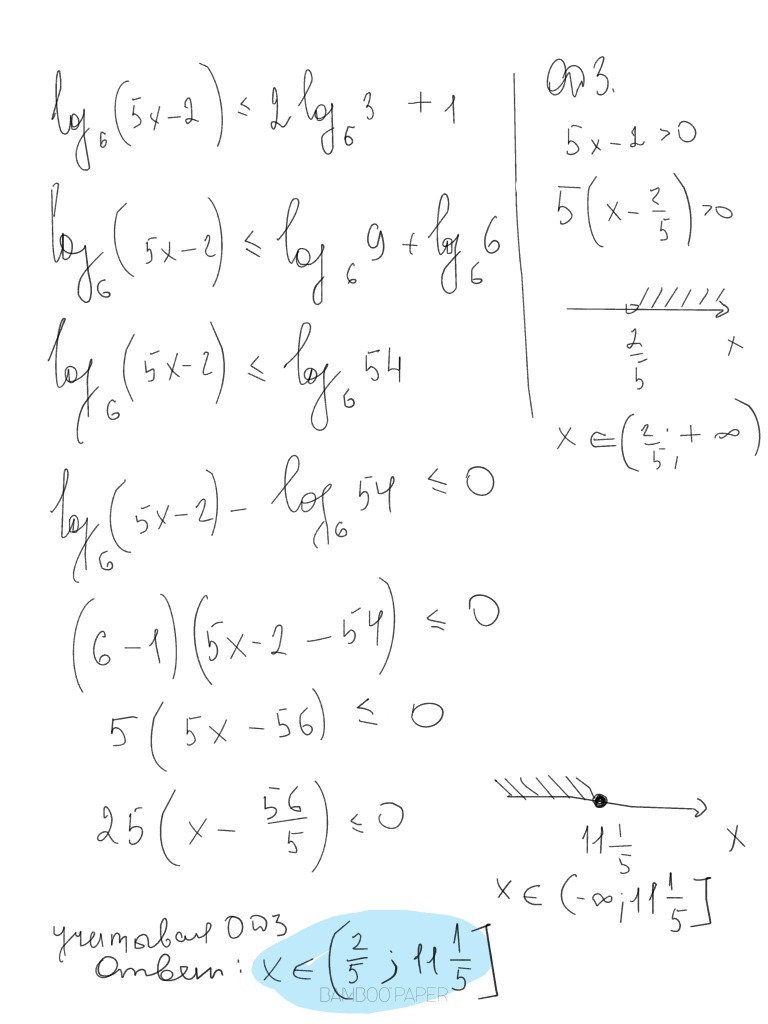 log₆(5x-2) ≤ 2log₆3 + 1
log₆(5x-2) ≤ log₆9 + log₆6
log₆(5x-2) ≤ log₆54
log₆(5x-2) - log₆54 ≤ 0
(6-1)(5x-2-54) ≤ 0
5(5x-56) ≤ 0
25(x - 56/5) ≤ 0
ОДЗ.
5x-2>0
5(x - 2/5)>0
2/5 x
x ∈ (2/5; +∞)
11 1/5 x
x ∈ (-∞; 11 1/5]
учитывая ОДЗ
Ответ: x ∈ (2/5; 11 1/5]
BAMBOO PAPER